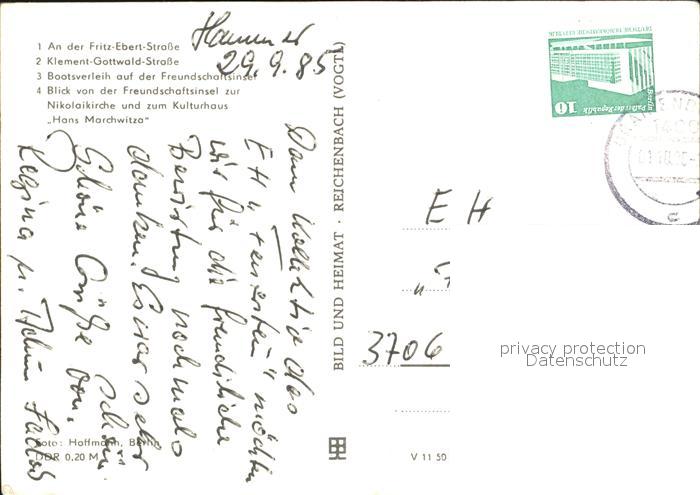 1 An der Fritz-Ebert-Straße
2 Klement-Gottwald-Straße
3 Bootsverleih auf der Freundschaftsinsel
4 Blick von der Freundschaftsinsel zur
Nikolaikirche und zum Kulturhaus
„Hans Marchwitza“
29.9.85
Dem Kollektiv des
EH
möchten
wir für die freundliche
Bewirtung nochmals
danken. Es war sehr
schön.
Schöne Grüße von
Regina u.
Foto: Hoffmann, Berlin
DDR 0,20 M
BILD UND HEIMAT · REICHENBACH (VOGTL)
V 11 50
10
Palast der Republik
Berlin
DEUTSCHE DEMOKRATISCHE REPUBLIK
EH
3706
privacy protection
Datenschutz